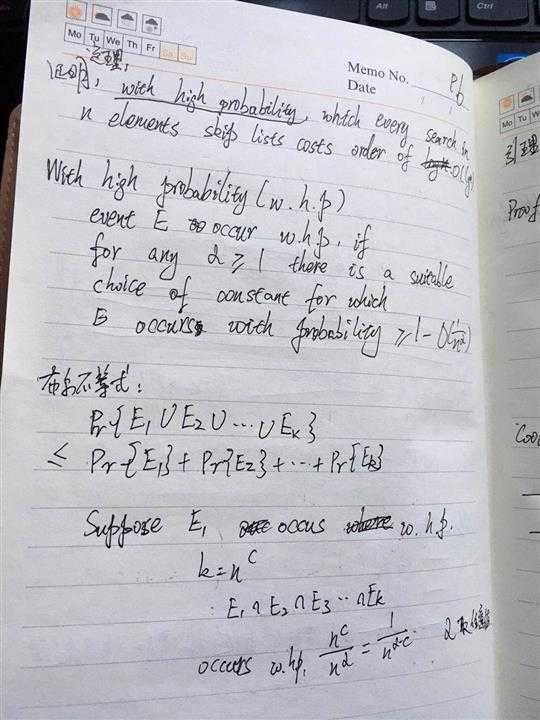 Alt
Ctrl
Mo Tu We Th Fr Sa Su
Memo No. P6
Date
引理:
with high probability, which every search in
n elements skip lists costs order of O(lg
With high probability (w.h.p)
event E occur w.h.p. if
for any α ≥ 1 there is a suitable
choice of constant for which
E occurs with probability ≥ 1 - O(1/n^α)
布尔不等式:
Pr{E₁ ∪ E₂ ∪ ... ∪ Eₖ}
≤ Pr{E₁} + Pr{E₂} + ... + Pr{Eₖ}
Suppose E, occus w.h.p.
k = n^c
E₁ ∩ E₂ ∩ E₃ ... ∩ Eₖ
occurs w.h.p. n^c/n^α = 1/n^(α-c) α取
Mo Tu W
引理
Proof